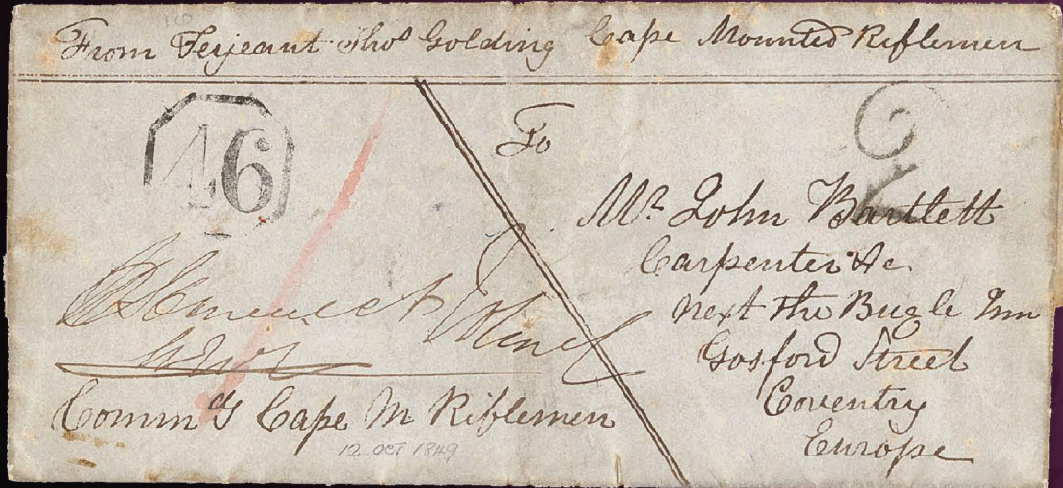 From Serjeant Thos Golding Cape Mounted Riflemen
46
To
Mr John Bartlett
Carpenter &c
Next the Bugle Inn
Gosford Street
Coventry
Europe
Commdg Cape M Riflemen
12 OCT 1849